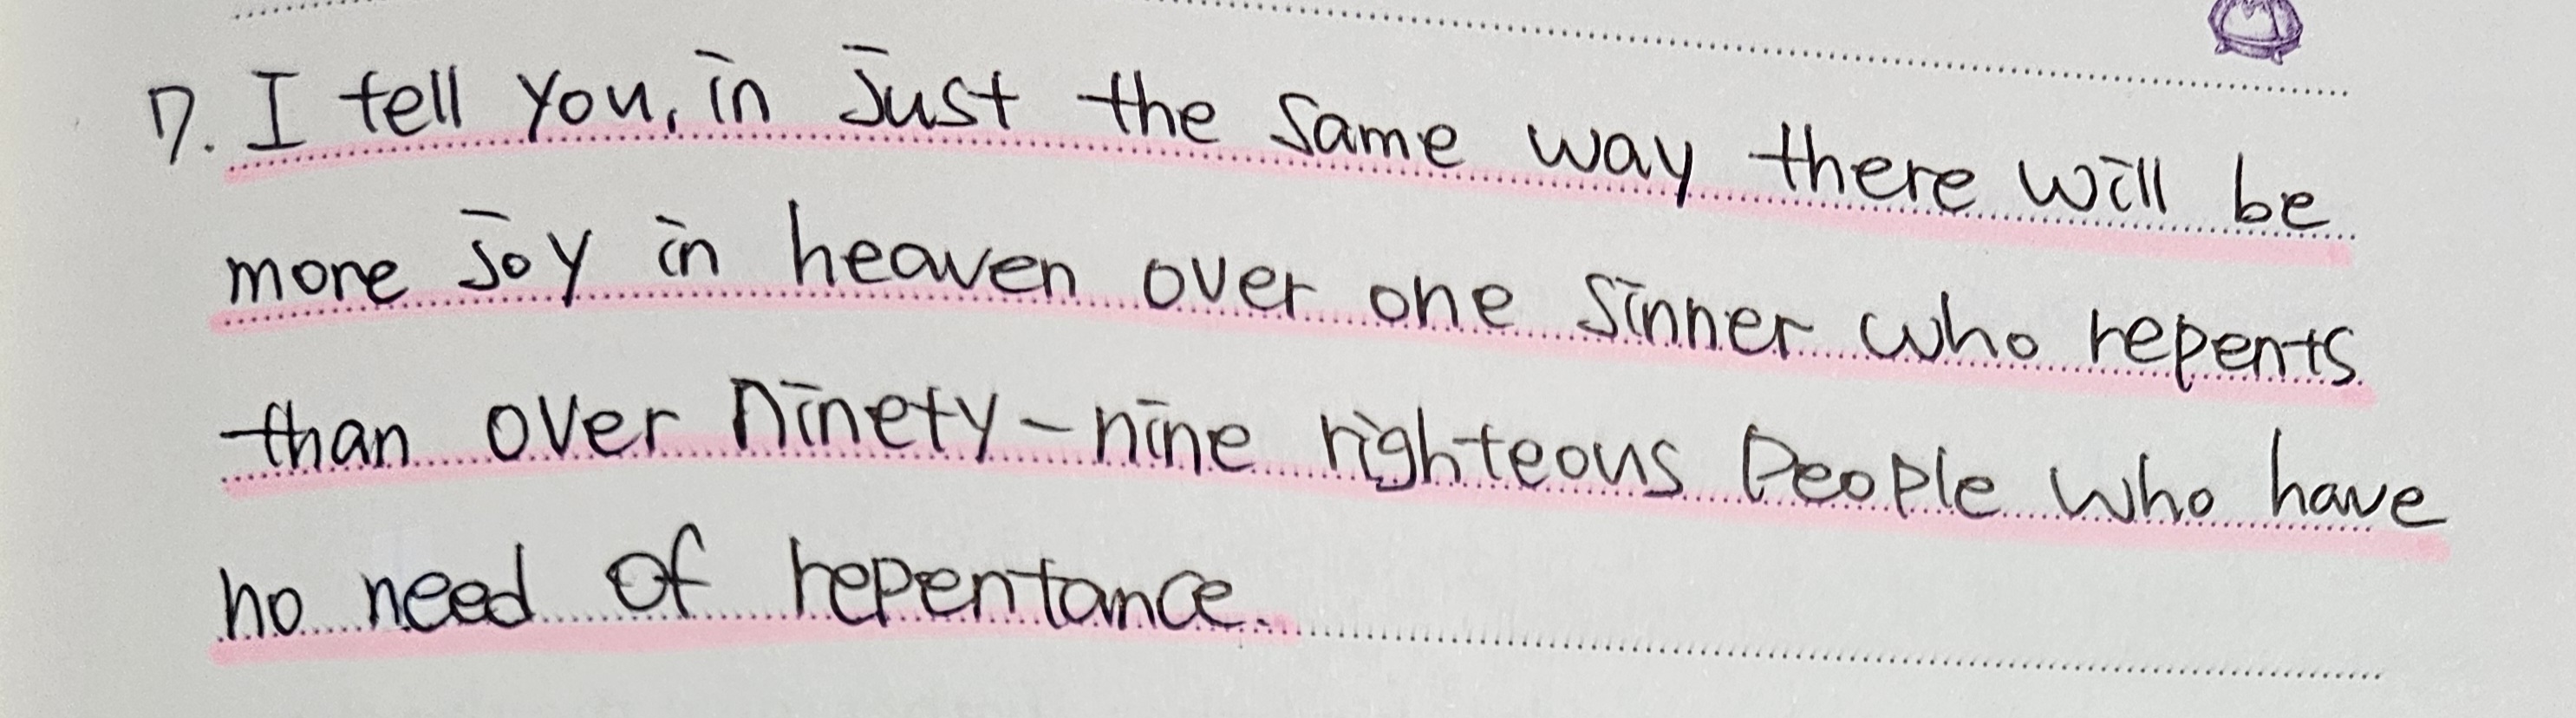 7. I tell you, in just the same way there will be
more joy in heaven over one sinner who repents
than over ninety-nine righteous people who have
no need of repentance.